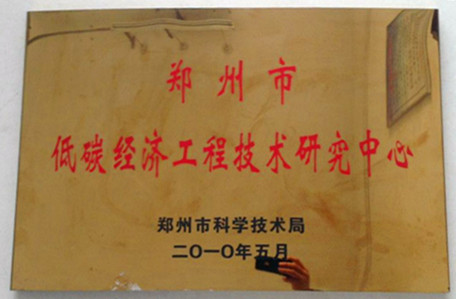 郑州市
低碳经济工程技术研究中心
郑州市科学技术局
二〇一〇年五月